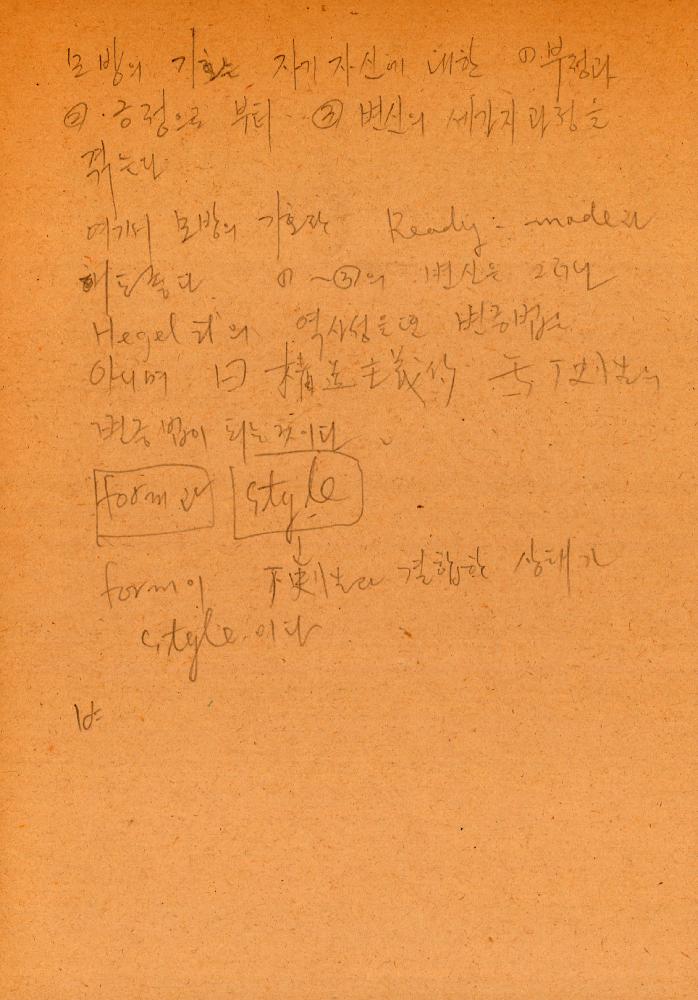 모방의 기호는 자기 자신에 대한 ①부정과
② 긍정으로 부터 ③ 변신의 세가지 과정을
겪는다
여기서 모방의 기호란 Ready-made라
해도 좋다 ①~③의 변신은 그러나
Hegel 의 역사성을 띤 변증법은
아니며 曰 構造主義的
변증법이 되는 것이다
form과 style
form이 결합한 상태가
style이다